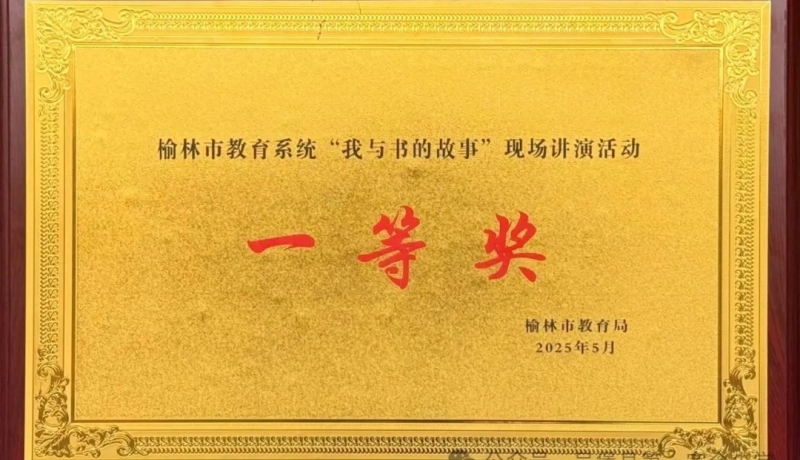 榆林市教育系统“我与书的故事”现场讲演活动
一等奖
榆林市教育局
2025年5月